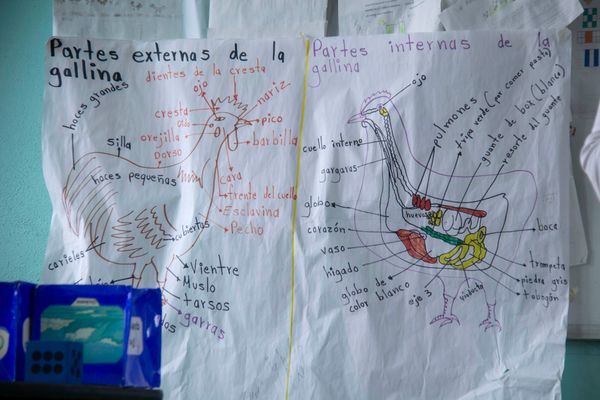 Partes externas de la
gallina
dientes de la cresta
hoces grandes
ojo
nariz
cresta
oido
pico
orejilla
barbilla
silla
Dorso
hoces pequeñas
cara
frente del cuello
Esclavina
Pecho
cubiertas
carieles
Vientre
Muslo
tarsos
garras
Partes internas de la
gallina
ojo
pulmones
tripa verde (por comer pasto)
guante de box (blanco)
resorte del guante
cuello interno
gargaras
globo
huevos
corazón
boca
vaso
higado
trompeta
globo de
color blanco
piedra gris
eje 3